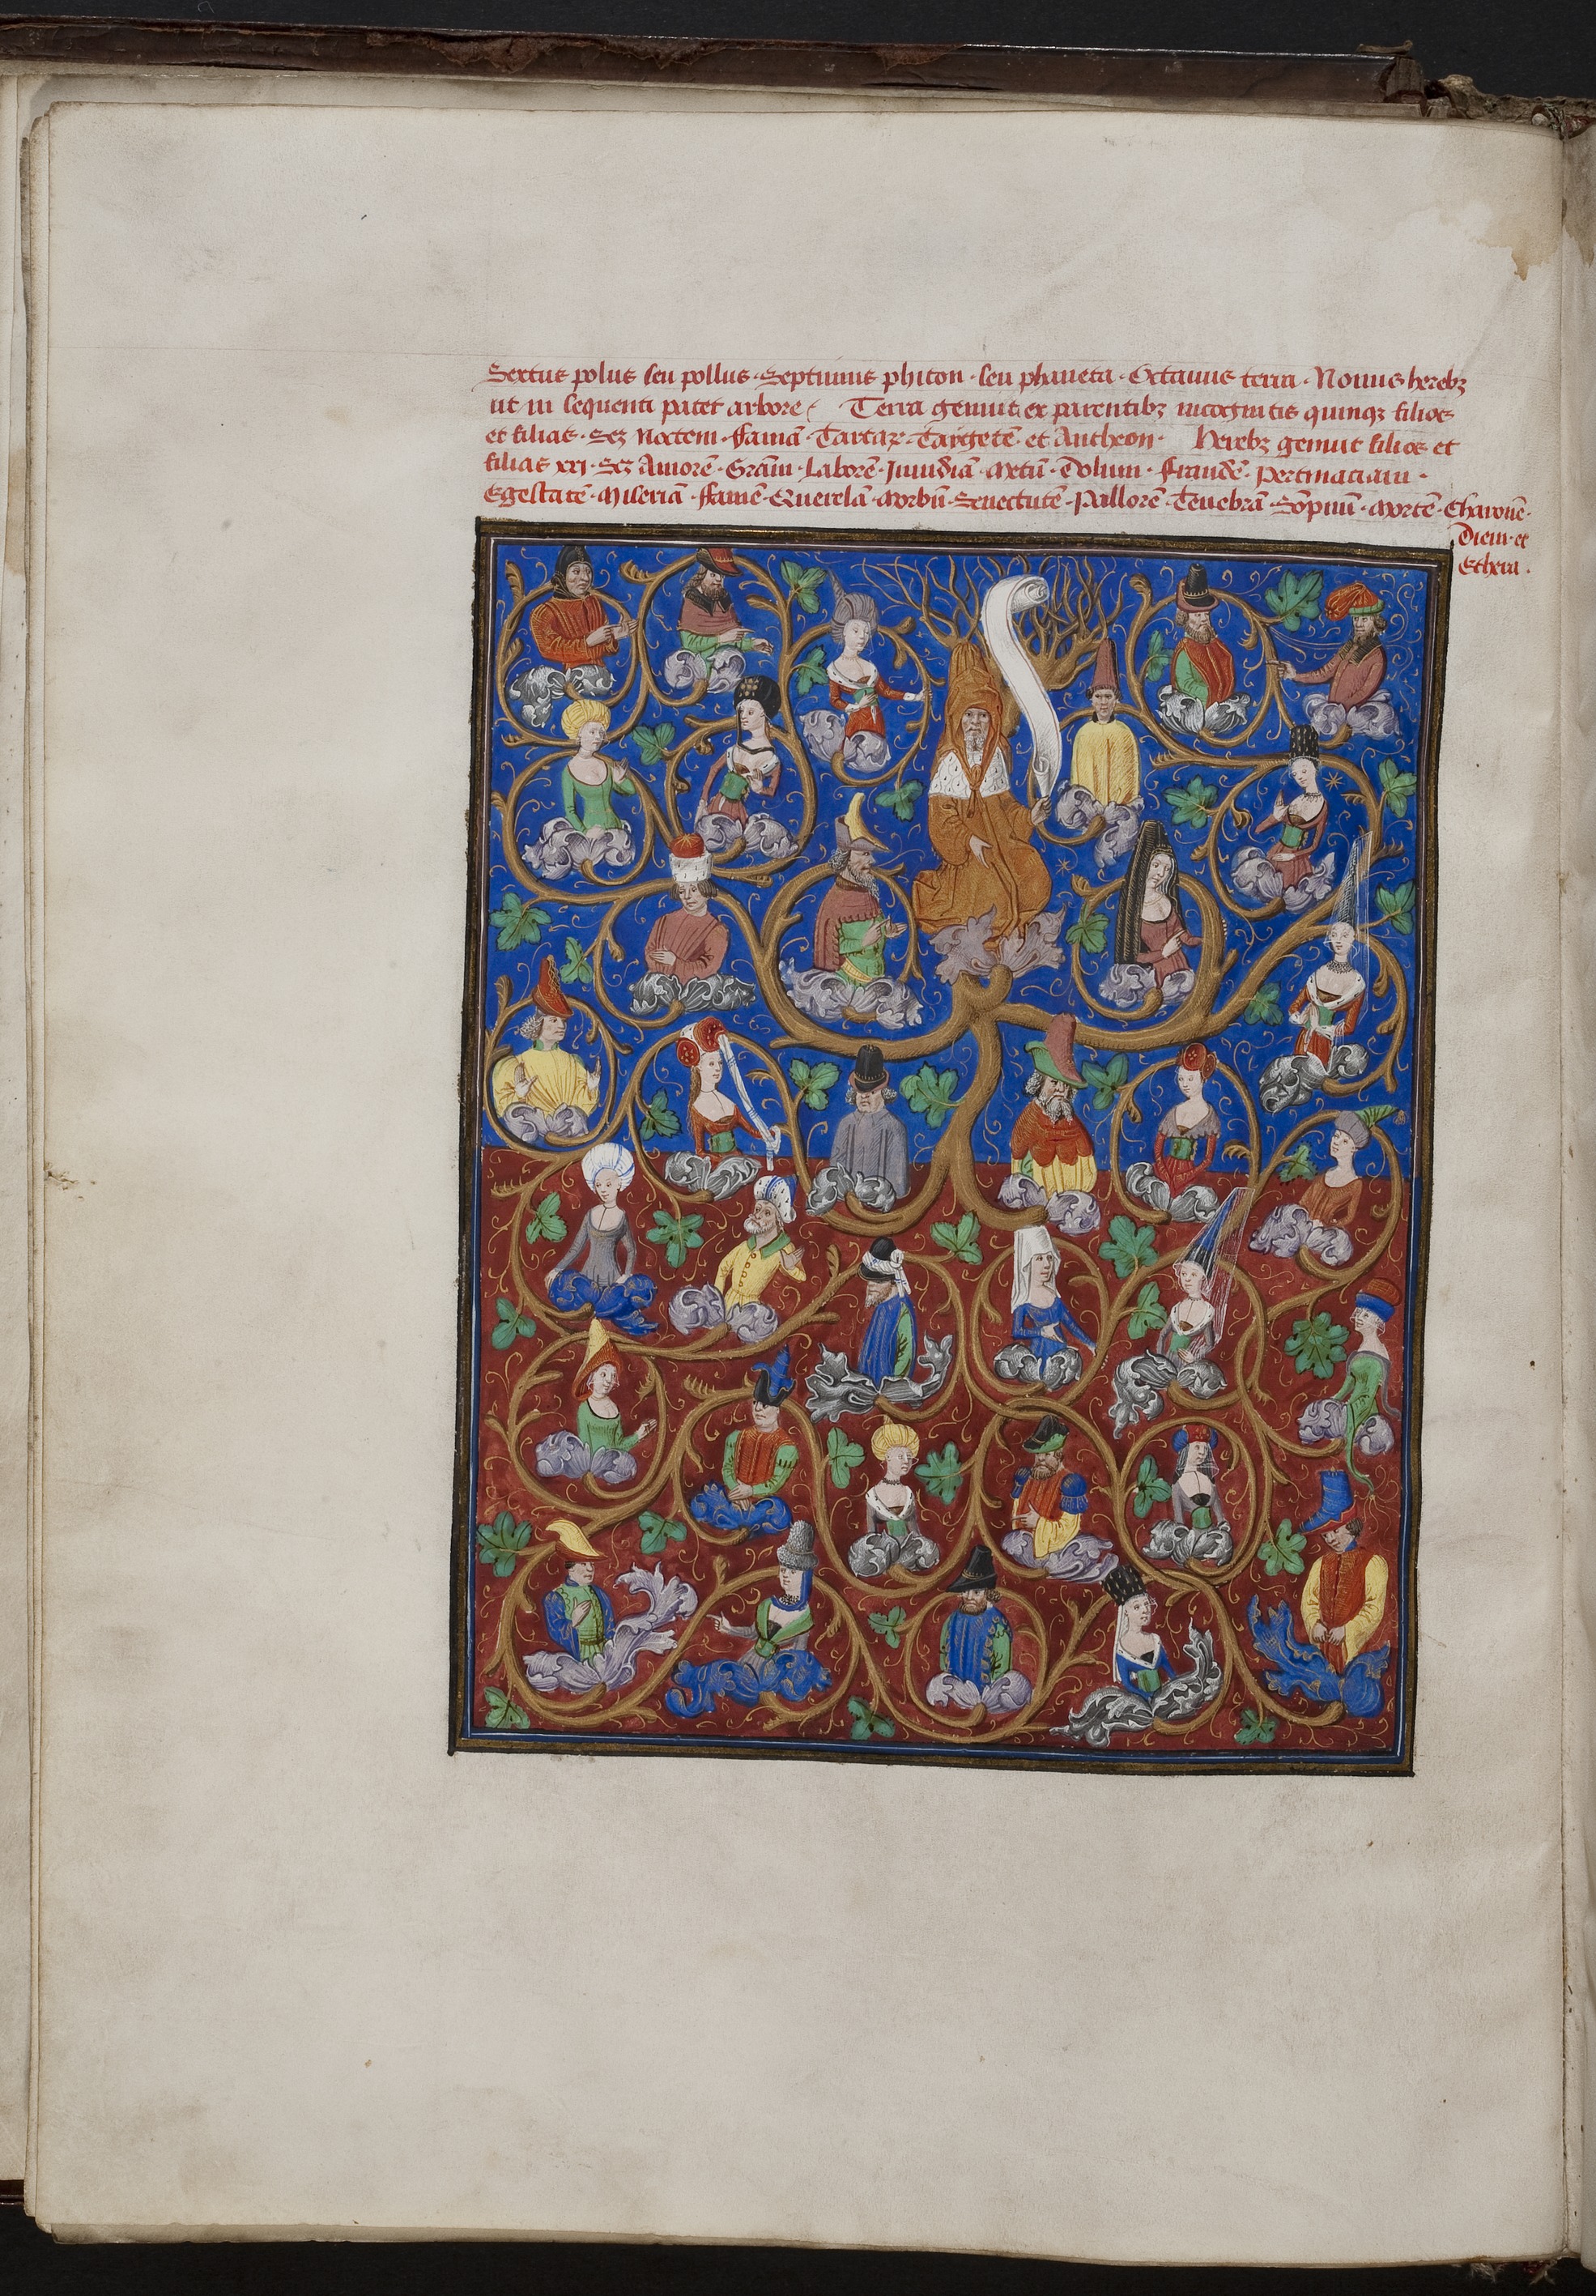 Sextus polus seu pollus · Septimus phiton · seu phaneta · Octauus terra · Nonus herebꝫ
ut in sequenti patet arbore · Terra genuit ex parentibꝫ incognitis quinqꝫ filios
et filias · Sꝫ Noctem · ffamā · Tartaꝝ · Taigetē · et Antheon · herebꝫ genuit filios et
filias xxi · Sꝫ Amorē · Grām · Laborē · Inuidiā · Metū · Dolum · fraudē · Pertinaciam ·
Egestatē · Miseriā · ffamē · Querelā · Morbū · Senectutē · Pallorē · Tenebrā · Sōpnū · Mortē · Charonē ·
Diem · et
Ethera ·